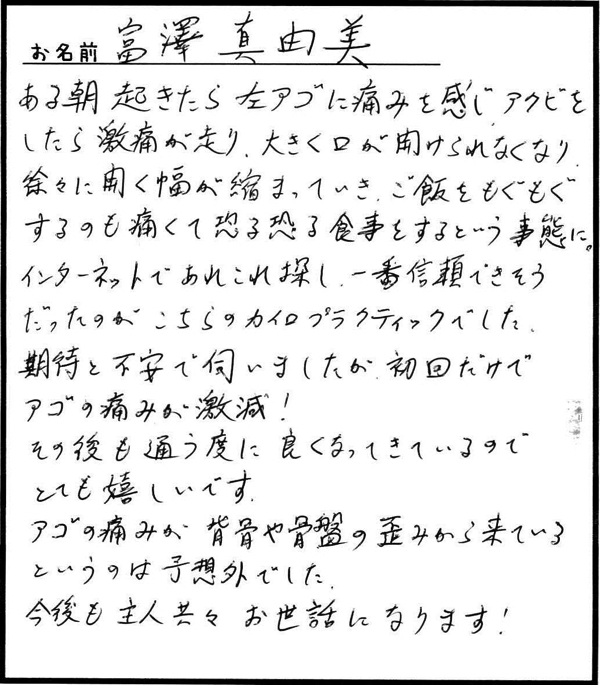 お名前 富澤 真由美
ある朝 起きたら 左アゴに痛みを感じ、アクビを
したら激痛が走り、大きく口が開けられなくなり、
徐々に開く幅が縮まっていき、ご飯をもぐもぐ
するのも痛くて恐る恐る食事をするという事態に。
インターネットであれこれ探し、一番信頼できそう
だったのが こちらのカイロプラクティックでした。
期待と不安で伺いましたが、初回だけで
アゴの痛みが激減!
その後も通う度に良くなってきているので
とても嬉しいです。
アゴの痛みが 背骨や骨盤の歪みから来ている
というのは予想外でした。
今後も主人共々 お世話になります!